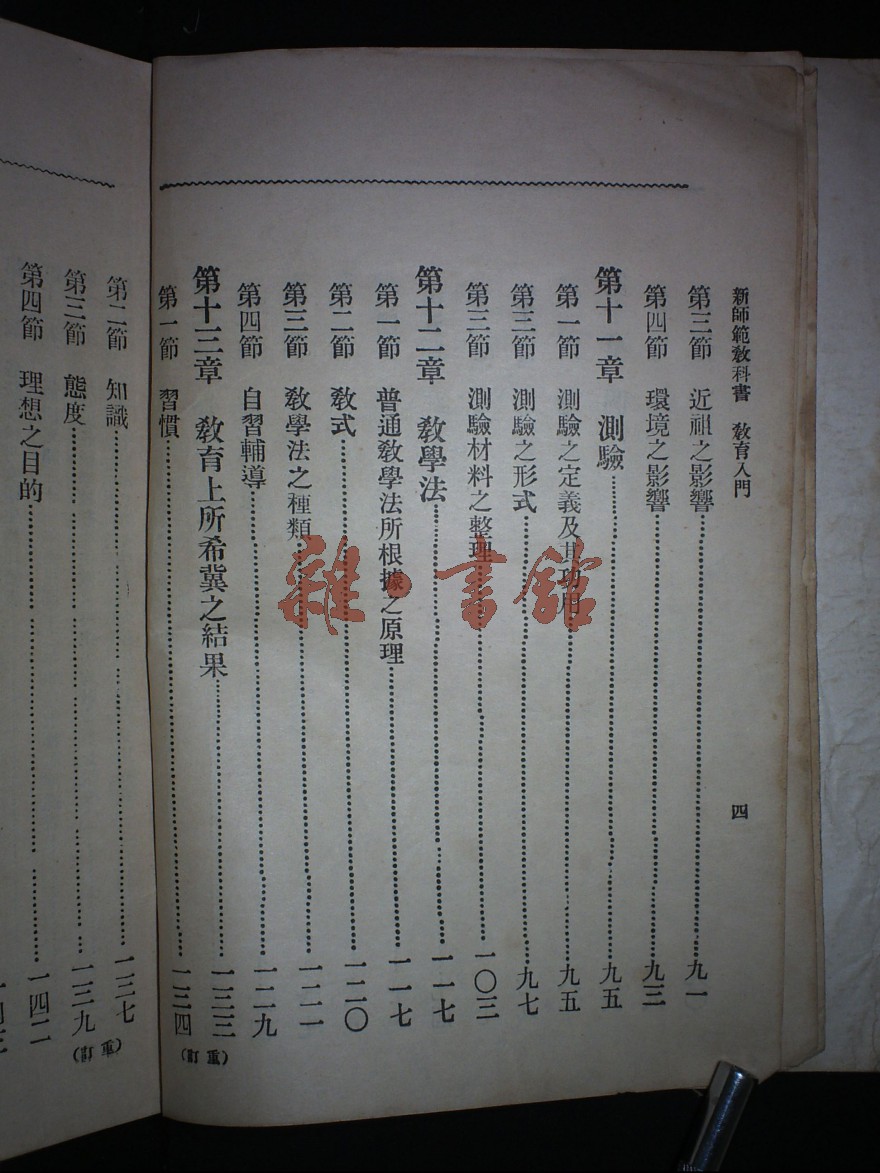 新師範教科書 教育入門 四
第三節 近祖之影響……九一
第四節 環境之影響……九三
第十一章 測驗……九五
第一節 測驗之定義及其功用……九五
第三節 測驗之形式……九七
第三節 測驗材料之整理……一〇三
第十二章 教學法……一一七
第一節 普通教學法所根據之原理……一一七
第二節 教式……一二〇
第三節 教學法之種類……一二一
第四節 自習輔導……一二九
第十三章 教育上所希冀之結果……一三三
第一節 習慣……一三四
(重訂)
第二節 知識……一三七
第三節 態度……一三九
第四節 理想之目的……一四二
(重訂)
雜·書館